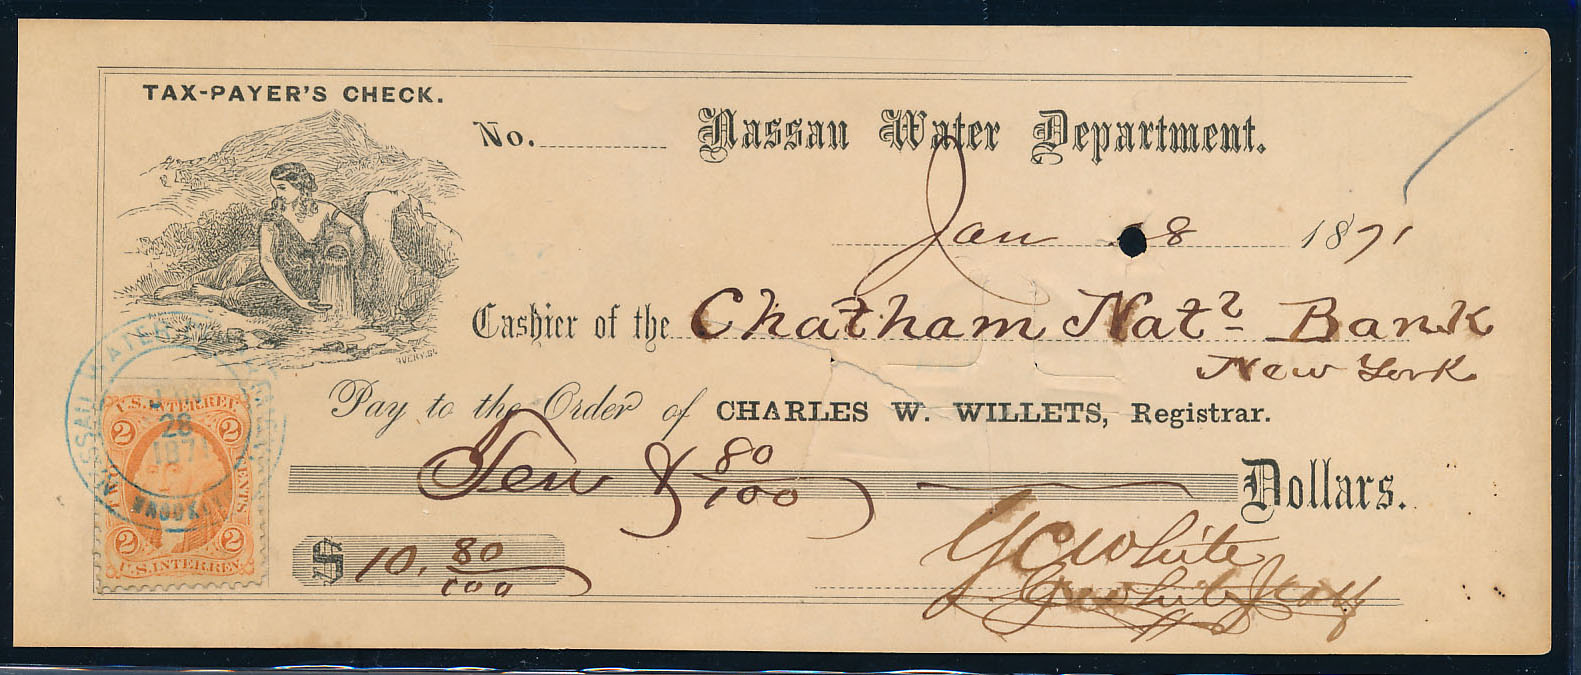 TAX-PAYER'S CHECK.
No. Nassau Water Department.
Jan 8 1871
Cashier of the Chatham Natl Bank
New York
Pay to the Order of CHARLES W. WILLETS, Registrar.
Ten & 80/100 Dollars.
$ 10. 80/100
G C White
NASSAU WATER
28
1871
BROOKLYN
U.S. INTER. REV.
2 2
CENTS
2 2
U.S. INTER. REV.